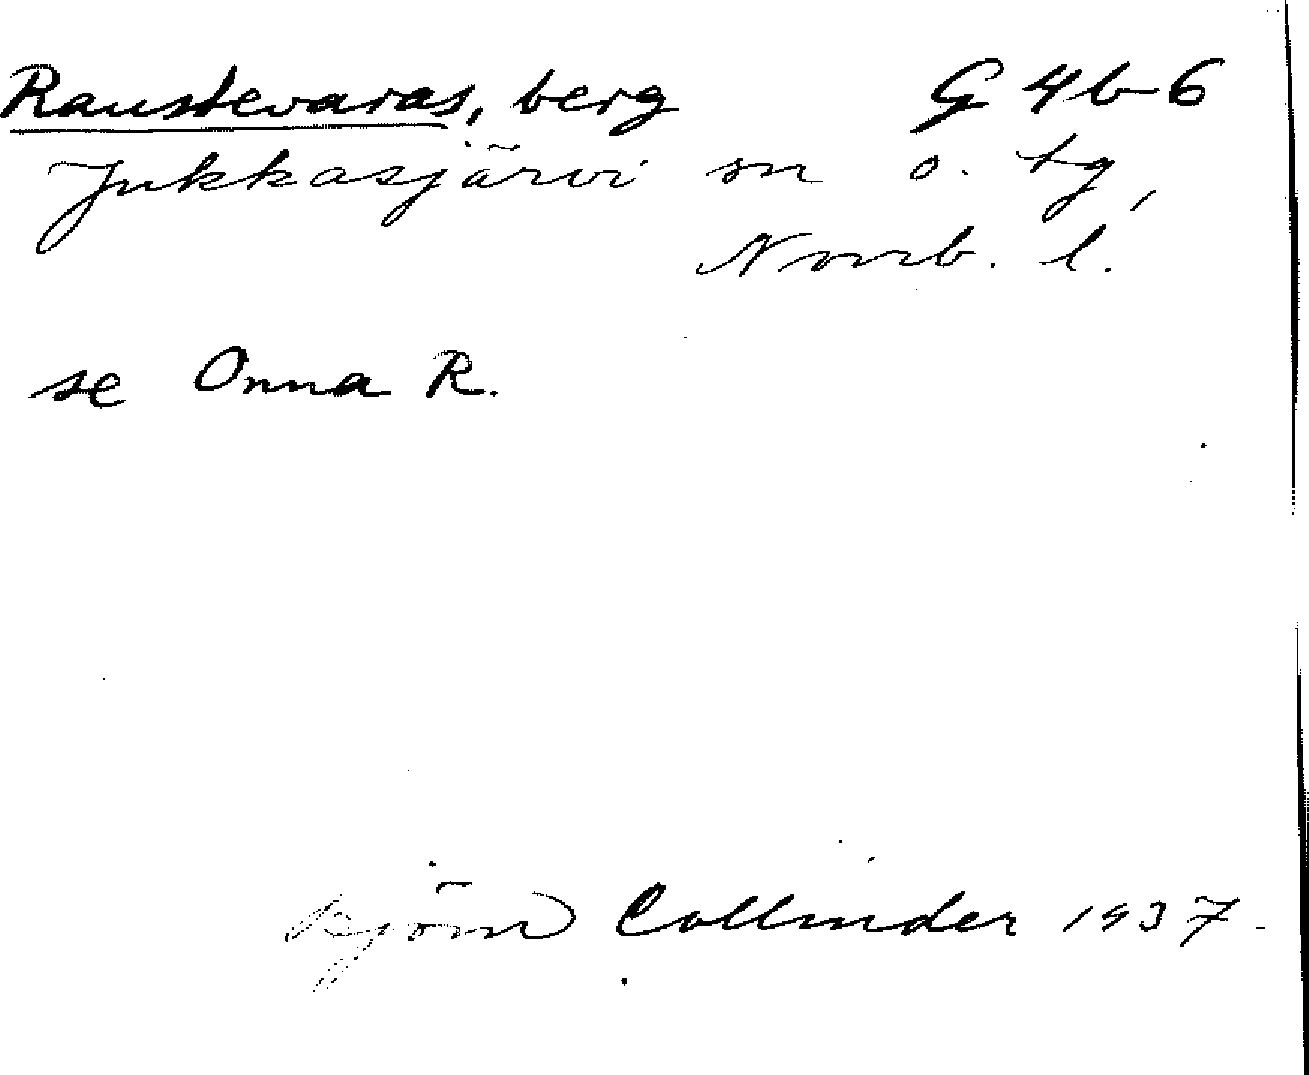 Raustevaras, berg G 4b-6
Jukkasjärvi sn o. tg,
Norrb. l.
se Onna R.
Björn Collinder 1937.